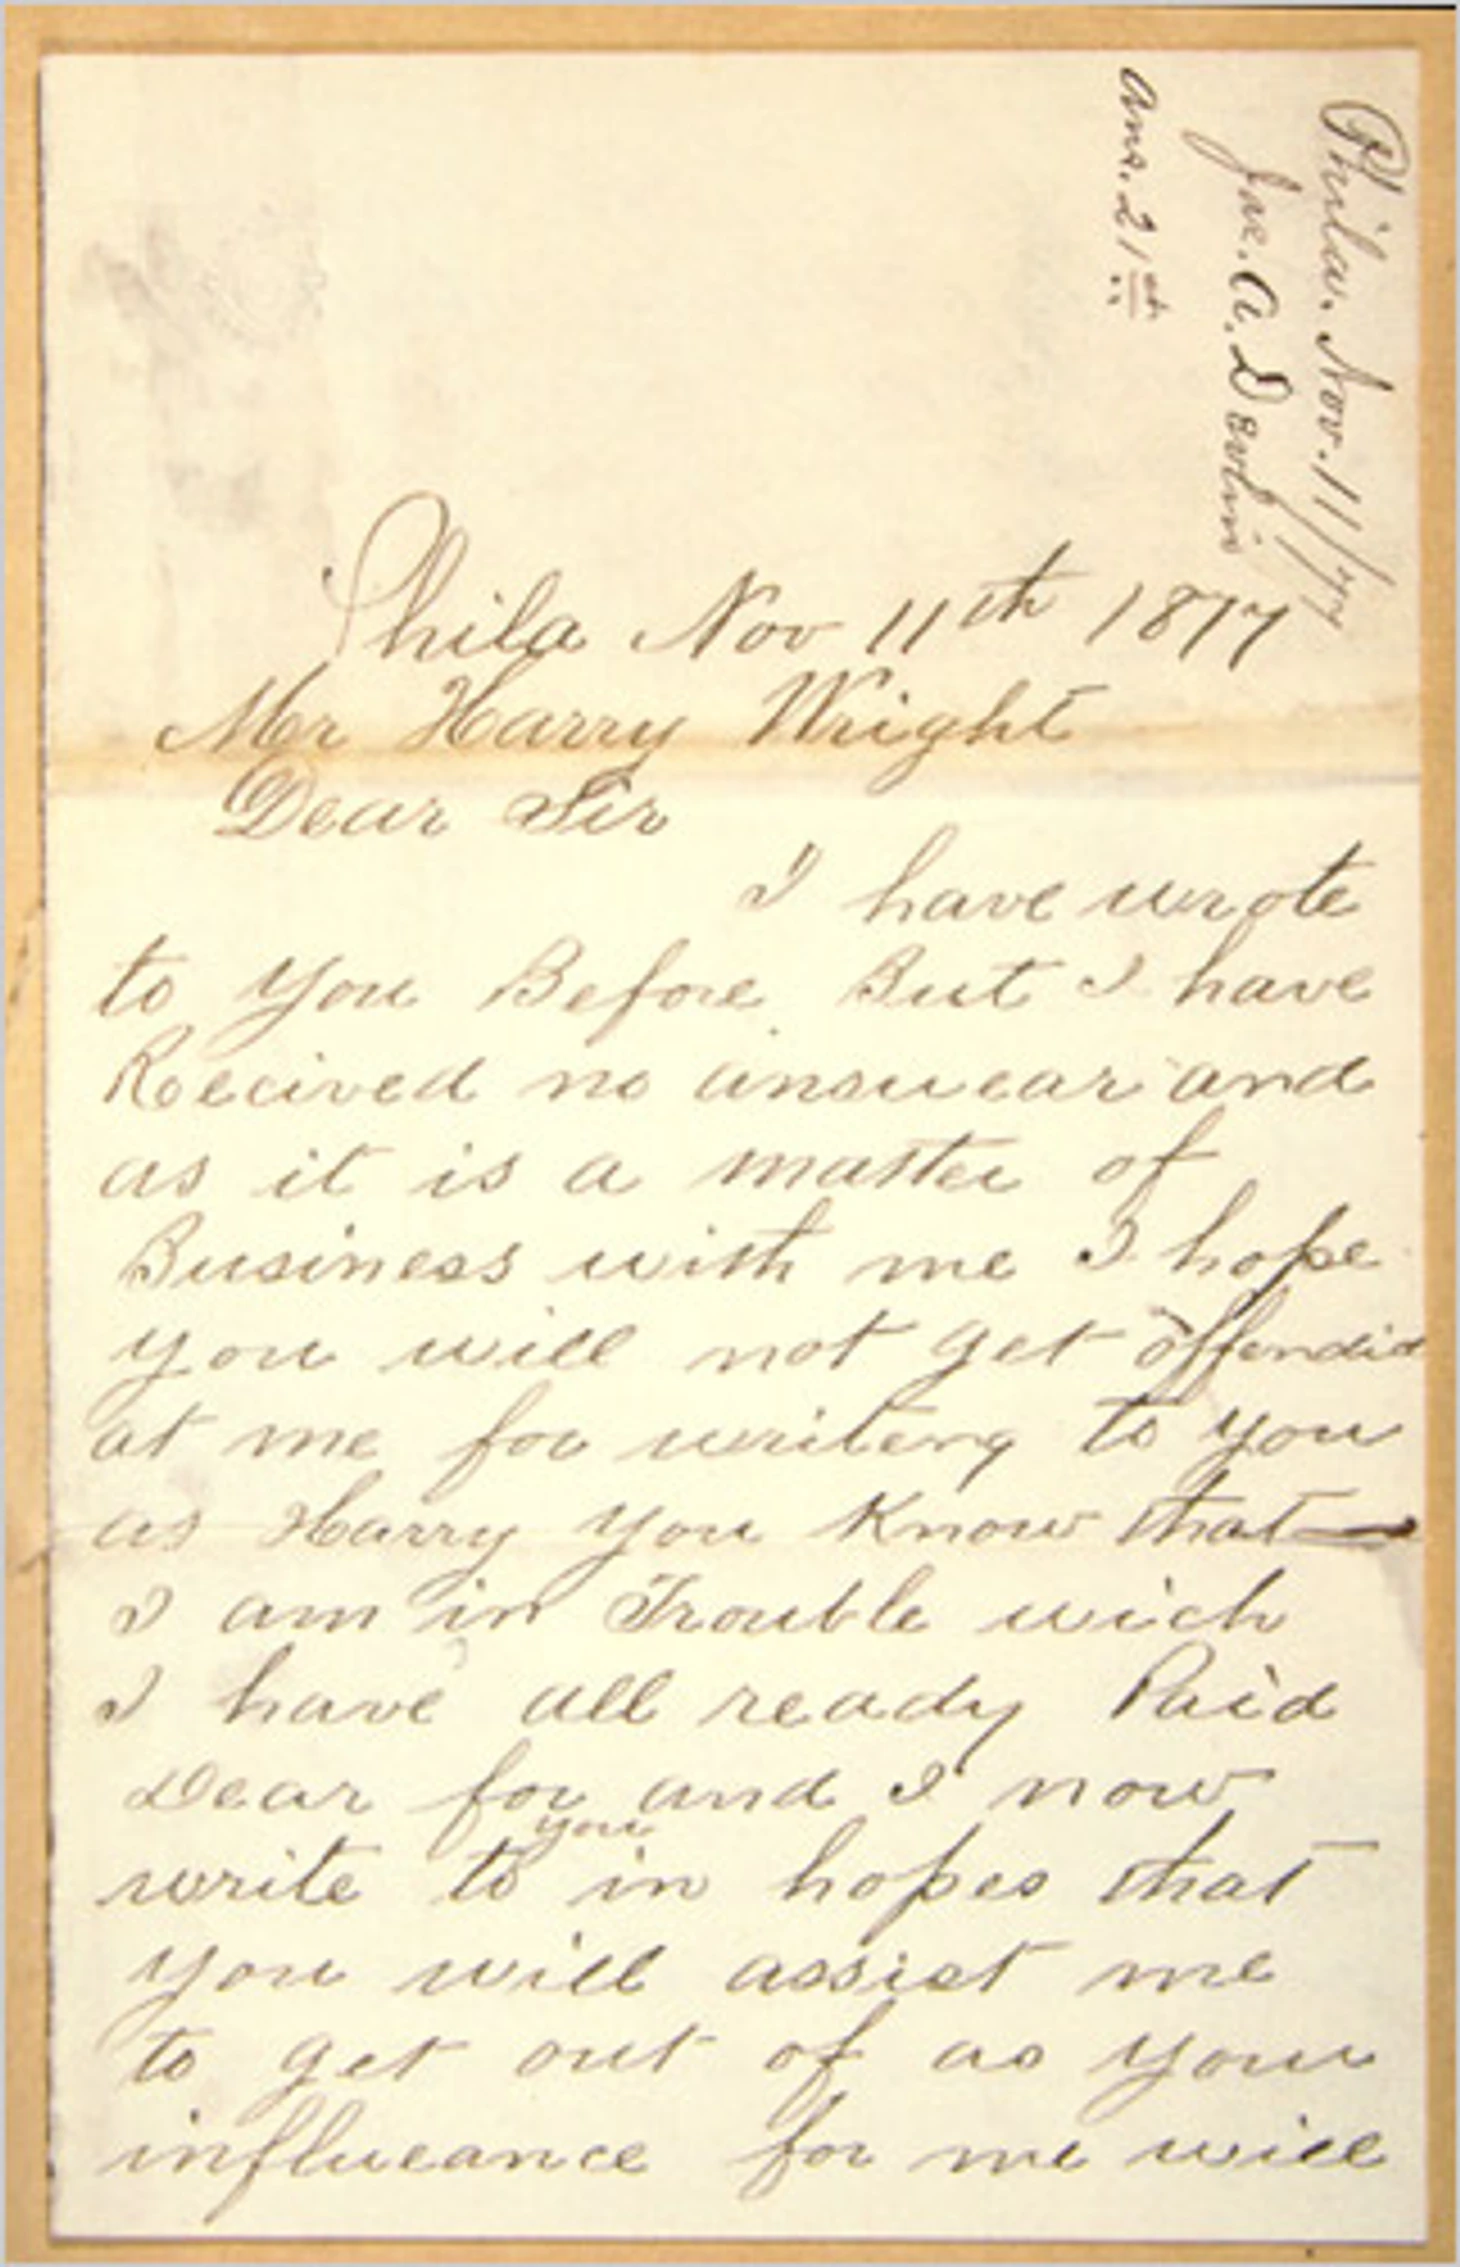 Phila. Nov. 11/77
Jas. A. Devlin
Ans. 21st
Phila Nov 11th 1877
Mr Harry Wright
Dear Sir
I have wrote
to you Before But I have
Recived no answear and
as it is a matter of
Business with me I hope
you will not get offendid
at me for writeng to you
as Harry you Know that
I am in Trouble wich
I have all ready Paid
Dear for and I now
write to you in hopes that
you will assist me
to get out of as your
influeance for me will